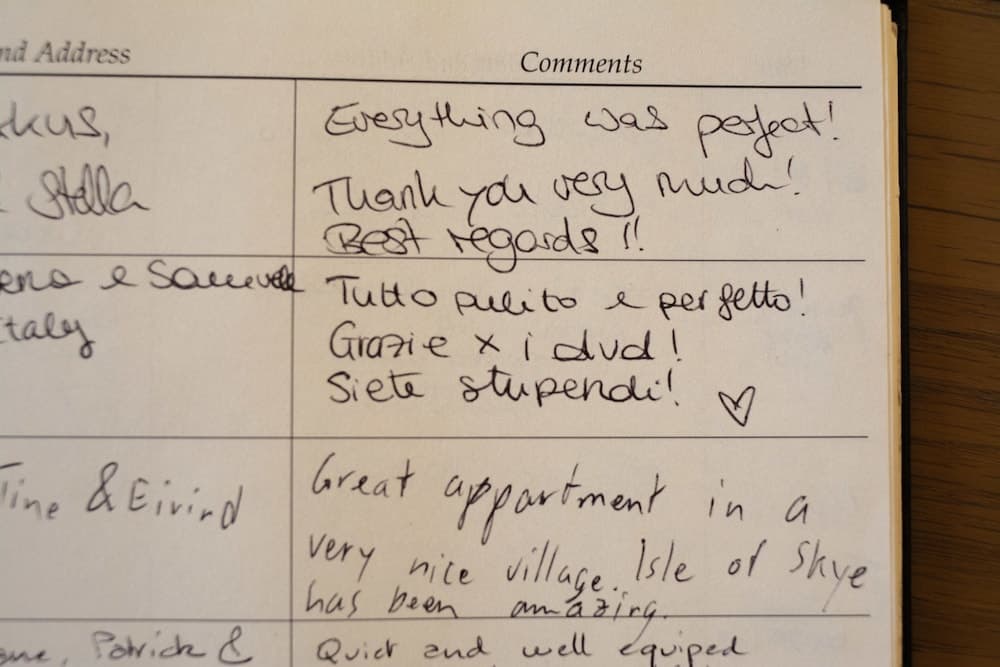 nd Address
Comments
kus,
Stella
Everything was perfect!
Thank you very much!
Best regards !!
e Samuele
Italy
Tutto pulito e perfetto!
Grazie x i dvd!
Siete stupendi! ♡
Tine & Eivind
Great appartment in a
very nice village. Isle of Skye
has been amazing.
Patrick &
Quiet and well equiped